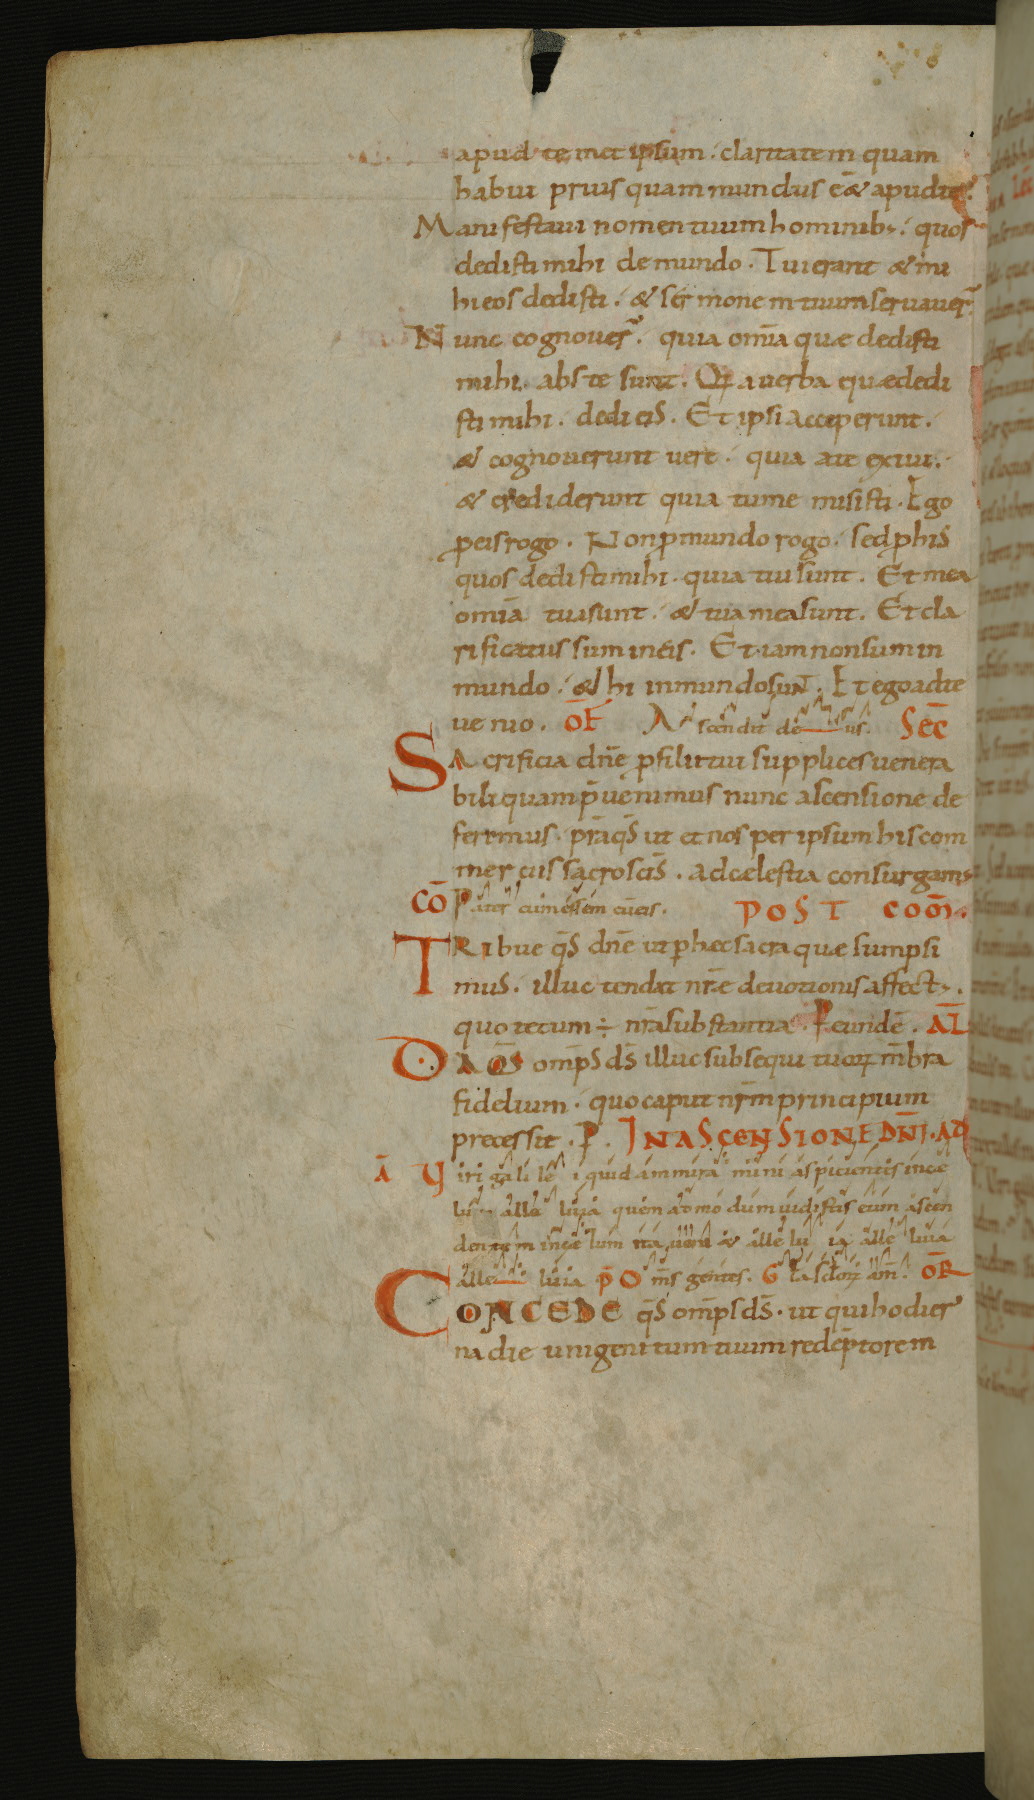 apud temet ipsum. claritatem quam
habui prius quam mundus eēt apud te.
Manifestaui nomen tuum hominib; quos
dedisti mihi de mundo. Tui erant & mi
hi eos dedisti. & sermonem tuum seruauer̄.
Nunc cognouer̄. quia om̄ia quae dedisti
mihi. abs te sunt. Quia uerba quae dedi
sti mihi. dedi eis. Et ipsi acceperunt.
& cognouerunt uere. quia a te exiui.
& crediderunt quia tu me misisti. Ego
p eis rogo. Non p mundo rogo. sed p his
quos dedisti mihi. quia tui sunt. Et mea
omīa tua sunt. & tua mea sunt. Et cla
rificatus sum in eis. Et iam non sum in
mundo. & hi in mundo sunt. Et ego ad te
uenio. OF̄ Ascendit deus. SEC̄
SAcrificia dn̄e p filii tui supplices uenera
bili quam p̄uenimus nunc ascensione de
ferimus. p̄ra q̄s ut et nos per ipsum his com
merciis sacroscīs. ad caelestia consurgam;
CŌ Pater cum essem cum eis. POST COM̄.
TRibue q̄s dn̄e ut p hec sacra quae sumpsi
mus. illuc tendat nr̄ae deuotionis affect;.
quo tecum ÷ nr̄a substantia. P eundē. AL̄
DA q̄s omp̄s ds̄ illuc subsequi tuorꝝ m̄bra
fidelium. quo caput nr̄m principium
precessit. P. IN ASCENSIONE DN̄I. AD
Ā Viri galilei quid ammiramini aspicientis in cae
lum alleluia quem ad modum uidistis eum ascen
dentem in caelum ita ueni & alleluia alleluia
alleluia P̄ Om̄s gentes. G̅ la sctorꝝ am̄. OR̄
CONCEDE q̄s omp̄s ds̄. ut qui hodier
na die unigenitum tuum redēptorem